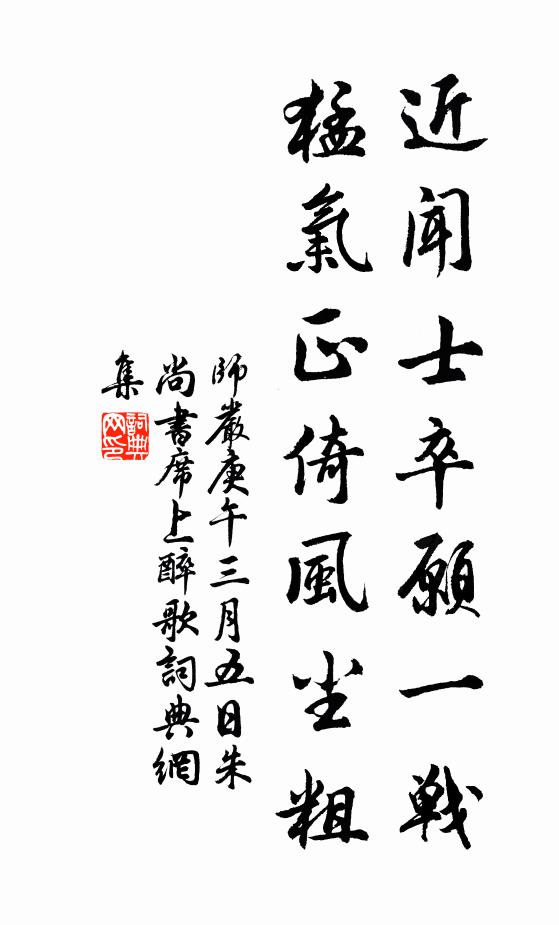 近聞士卒願一戰
猛氣正倚風尘粗
師嚴庚午三月五日朱
尚書席上醉歌詞典網
集
詞典
网印